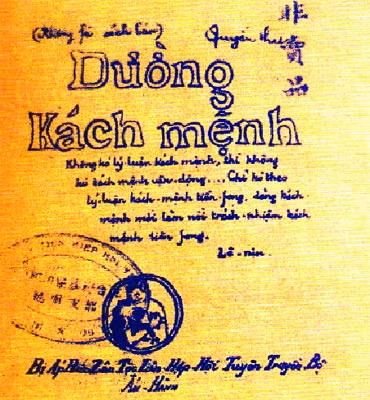 (Không fải sách bán) Quyển thứ
非賣品
Dường
Kách mệnh
Không kó lý luận kách mệnh, thì không
kó kách mệnh vận-động.... Chỉ kó theo
lý luận kách-mệnh tiền fong, đảng kách
mệnh mới làm nổi trách-nhiệm kách
mệnh tiền fong.
Lê-nin.
Bị Áp Bức Dân Tộc Liên Hợp Hội Tuyên Truyền Bộ
Ấn Hành